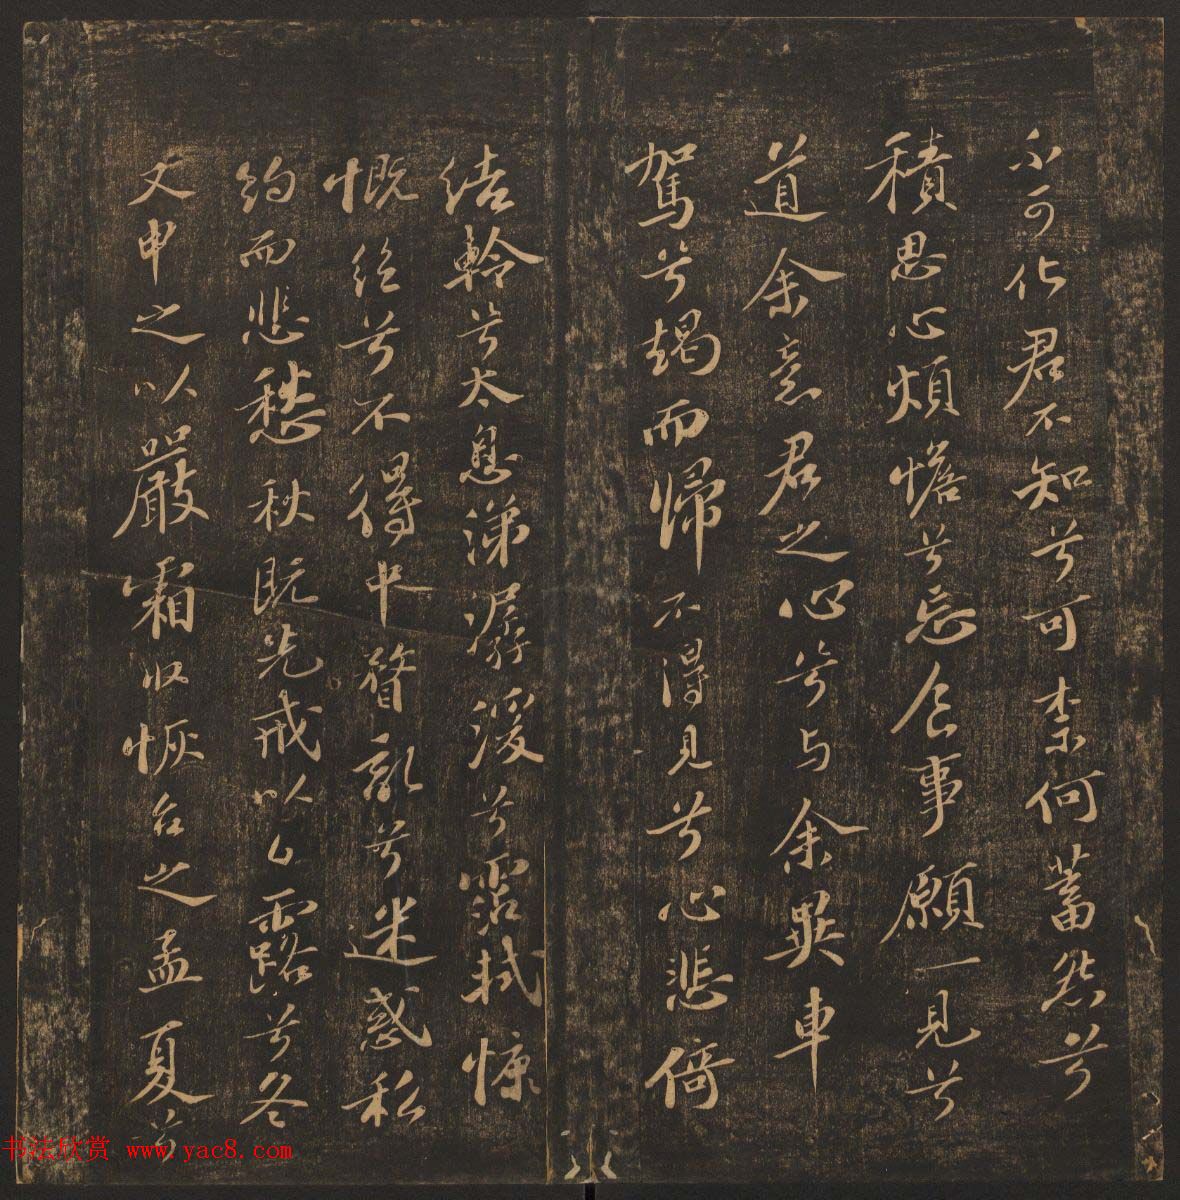 不可化君不知兮可柰何蓄怨兮
積思心煩憺兮忘食事願一見兮
道余意君之心兮与余異車
駕兮朅而歸不得見兮心悲倚
結軨兮太息涕潺湲兮霑軾慷
慨絶兮不得中瞀亂兮迷惑私
約而悲愁秋既先戒以白露兮冬
又申之以嚴霜收恢台之孟夏兮
书法欣赏 www.yac8.com